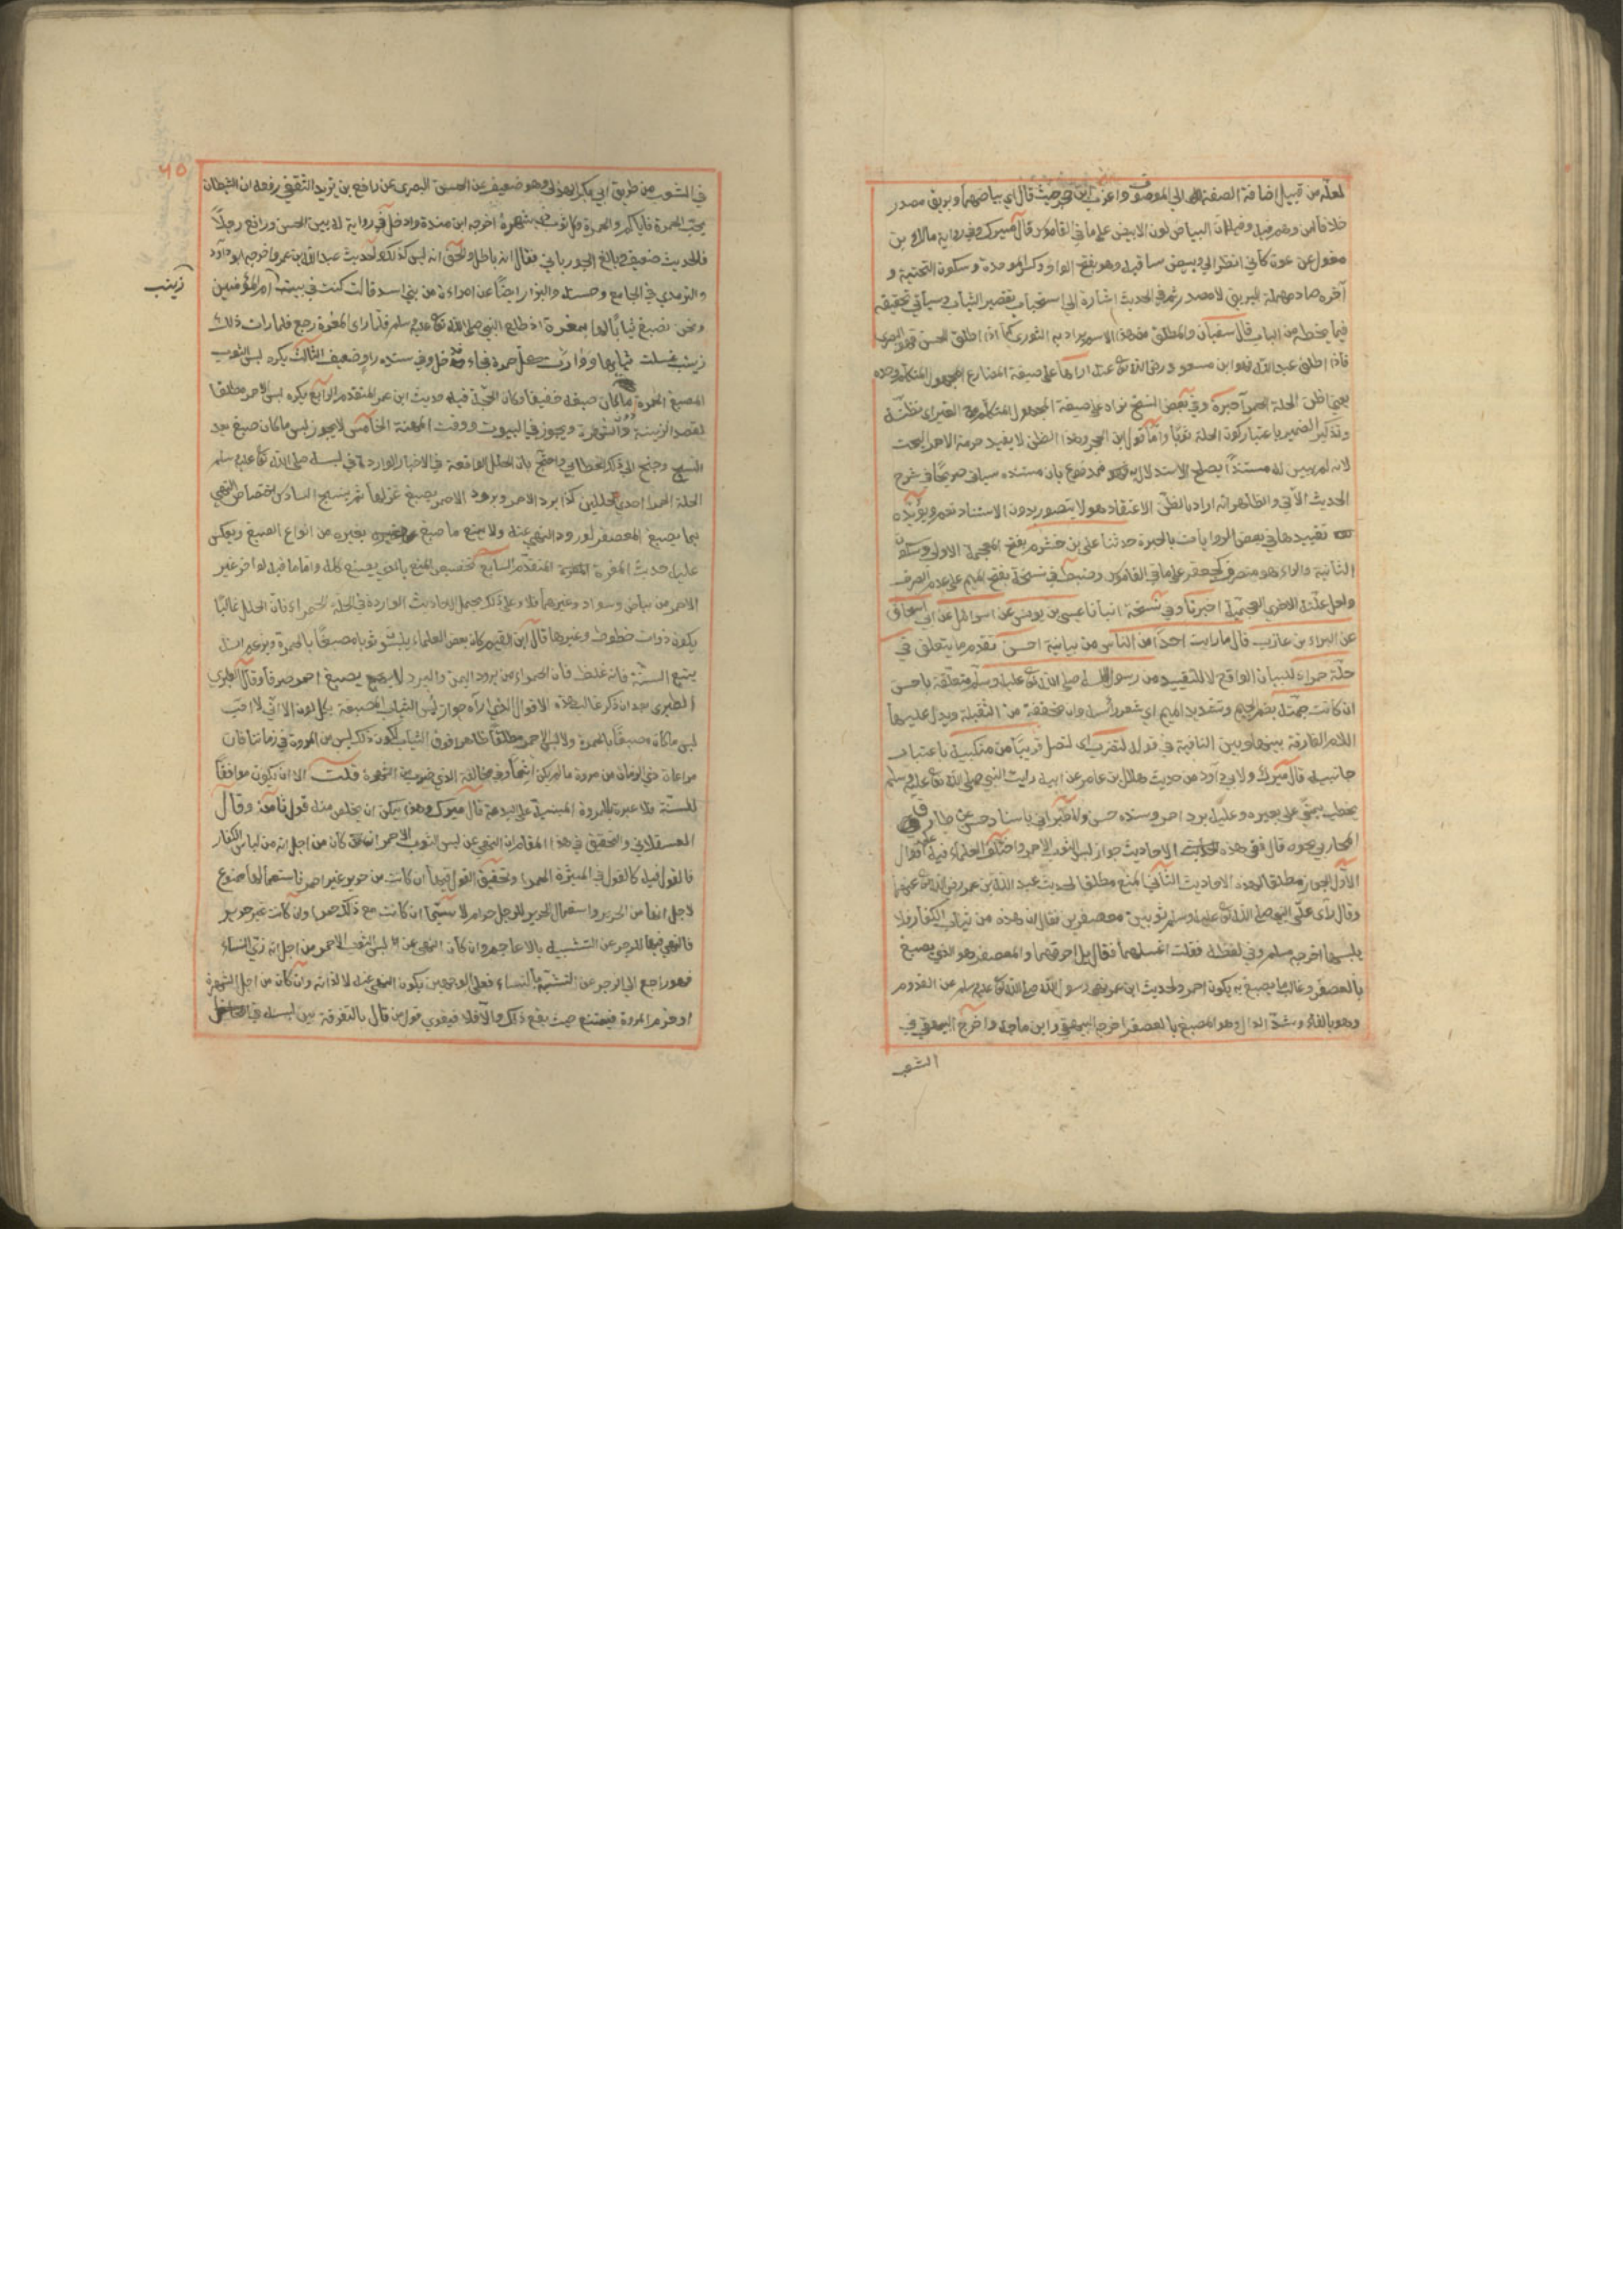 لعله من قبيل اضافة الصفة الى الموصوف واغرب ابن حجر حيث قال اي بياضهما وبريق مصدر
خلافا لمن وهم فيه وقيل لان البياض لون الابيض على ما في القاموس قال ميرك وفي رواية مالك بن
مغول عن عون كأني انظر الى وبيص ساقيه وهو بفتح الواو وكسر الموحدة وسكون التحتية و
آخره صاد مهملة البريق لا مصدر ثم في الحديث اشارة الى استحباب تقصير الثياب وسيأتي تحقيقه
فيما يخطه من الباب قال سفيان والمطلق من هذا الاسم يراد به الثوري كما اذا اطلق الحسن فهو البصري
فاذا اطلق عبد الله فهو ابن مسعود رضي الله تع عنه اراها على صيغة المضارع المجهول المتكلم وحده
يعني اظن الحلة الحمراء حبرة وفي بعض النسخ نراه على صيغة المجهول المتكلم مع الغير اي نظنه
وتذكير الضمير باعتبار كون الحلة ثوبا واما قول ابن حجر وهذا الظن لا يفيد حرمة الاحمر البحت
لانه لم يبين له مستندا يصلح للاستدلال به فمدفوع بان مستنده سيأتي صريحا في شرح
الحديث الآتي والظاهر انه اراد بالظن الاعتقاد وهو لا يتصور بدون الاستناد نعم ويؤيده
تقييدها في بعض الروايات بالحبرة حدثنا علي بن خشرم بفتح المعجمة الاولى وسكون
الثانية والراء وهو منصرف كجعفر على ما في القاموس وضبط في نسخة بفتح الميم على عدم الصرف
ولعل علته الاخرى العجمية اخبرنا وفي نسخة انبأنا عيسى بن يونس عن اسرائيل عن ابي اسحاق
عن البراء بن عازب قال ما رايت احدا من الناس من بيانية احسن تقدم ما يتعلق في
حلة حمراء لبيان الواقع لا للتقييد من رسول الله صلى الله تع عليه وسلم متعلقة باحسن
ان كانت جمته بضم الجيم وتشديد الميم اي شعر رأسه وان مخففة من الثقيلة ويدل عليها
اللام الفارقة بينها وبين النافية في قوله لتضرب اي لتصل قريبا من منكبيه باعتبار
جانبيه قال ميرك ولابي داود من حديث هلال بن عامر عن ابيه رايت النبي صلى الله تع عليه وسلم
يخطب بمنى على بعيره وعليه برد احمر وسنده حسن وللطبراني باسناد حسن عن طارق
المحاربي نحوه قال ففي هذه الاحاديث جواز لبس الثوب الاحمر واختلف العلماء فيه على اقوال
الاول الجواز مطلقا لهذه الاحاديث الثاني المنع مطلقا لحديث عبد الله بن عمر رضي الله تع عنهما
وقال رأى علي النبي صلى الله تع عليه وسلم ثوبين معصفرين فقال ان هذه من ثياب الكفار فلا
يلبسها اخرجه مسلم وفي لفظ له فقلت اغسلهما فقال بل احرقهما والمعصفر هو الذي يصبغ
بالعصفر وغالب ما يصبغ به يكون احمر ولحديث ابن عمر نهى رسول الله صلى الله تع عليه سلم عن الفدوم
وهو بالفاء وشد الدال وهو المصبغ بالعصفر اخرجه البيهقي وابن ماجه واخرج البيهقي في
الشعب
٦٥
في الشعب من طريق ابي بكر الهذلي وهو ضعيف عن الحسن البصري عن رافع بن يزيد الثقفي رفعه ان الشيطان
يحب الحمرة فاياكم والحمرة وكل ثوب ذي شهرة اخرجه ابن منده وادخل في رواية له بين الحسن ورافع رجلا
فالحديث ضعيف وبالغ الجورباني فقال انه باطل والحق انه ليس كذلك ولحديث عبد الله بن عمرو اخرجه ابو داود
والترمذي في الجامع وحسنه والبزار ايضا عن امراءة من بني اسد قالت كنت في بيت ام المؤمنين
زينب
ونحن نصبغ ثيابا لها بمغرة اذ طلع النبي صلى الله تع عليه سلم فلما راى المغرة رجع فلما رات ذلك
زينب غسلت ثيابها ووارت كل حمرة فجاء فدخل وفي سنده راو ضعيف الثالث يكره لبس الثوب
المصبغ بالحمرة ما كان صبغه خفيفا وكان الحجة فيه حديث ابن عمر المتقدم الرابع يكره لبس الاحمر مطلقا
لقصد الزينة والشهرة ويجوز في البيوت ووقت المهنة الخامس لا يجوز لبس ما كان صبغ بعد
النسج وجنح الى ذلك الخطابي واحتج بان الحلل الواقعة في الاخبار الواردة في لبسه صلى الله تع عليه سلم
الحلة الحمراء احدى حلل اليمن كذا برد الاحمر وبرود الاحمر يصبغ غزلها ثم ينسج السادس اختصاص النهي
بما يصبغ المعصفر لورود النهي عنه ولا يمنع ما صبغ بغيره من انواع الصبغ ويعكر
عليه حديث المغرة المتقدم السابع تخصيص المنع بالذي يصبغ كله واما ما فيه لون اخر غير
الاحمر من بياض وسواد وغيرهما فلا وعلى ذلك يحمل الاحاديث الواردة في الحلة الحمراء فان الحلل غالبا
يكون ذوات خطوط وغيرها قال ابن القيم كان بعض العلماء يلبس ثوبا مصبغا بالحمرة ويزعم انه
يتبع السنة فانه غلط فان الحمراء من برود اليمن والبرد لا يصبغ احمر صرفا وقال الطبري
الطبري بعد ان ذكر غالب هذه الاقوال الذي اراه جواز لبس الثياب المصبغة بكل لون الا اني لا احب
لبس ما كان مصبغا بالحمرة ولا لبس الاحمر مطلقا ظاهرا فوق الثياب لكون ذلك ليس من المروة في زماننا فان
مراعات ذي الزمان من مروة ما لم يكن اثما وفي مخالفة الزي ضرب من الشهرة قلت الا ان يكون موافقا
للسنة فلا عبرة للمروة المبنية على البدعة قال ميرك وهذا يمكن ان يخلص منه قول ثامن وقال
العسقلاني والتحقيق في هذا المقام ان النهي عن لبس الثوب الاحمر ان كان من اجل انه من لباس الكفار
فالقول فيه كالقول في الميثرة الحمراء وتحقيق القول فيها ان كانت من حرير غير احمر فاستعمالها ممنوع
لاجل انها من الحرير واستعمال الحرير للرجل حرام لا سيما ان كانت مع ذلك حمرا وان كانت غير حرير
فالنهي فيها للزجر عن التشبيه بالاعاجم وان كان النهي عن لبس الثوب الاحمر من اجل انه زي النساء
فهو راجع الى الزجر عن التشبه بالنساء فعلى الوجهين يكون النهي عنه لا لذاته وان كان من اجل الشهرة
او خرم المروة فيمتنع حيث يقع ذلك والا فلا فيقوي قول من قال بالتفرقة بين لبسه في المحافل